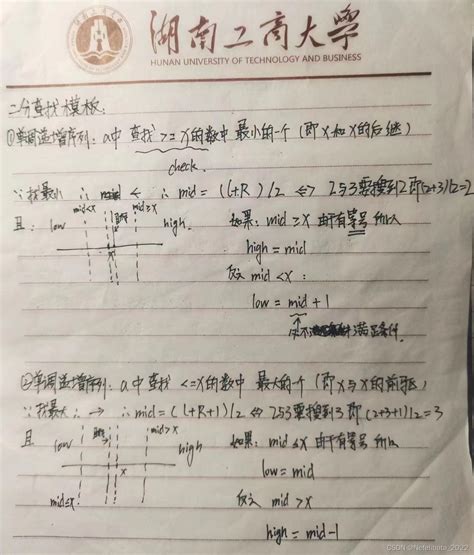 湖南工商大学
HUNAN UNIVERSITY OF TECHNOLOGY AND BUSINESS
二分查找模板:
①单调递增序列: a中 查找 >= x的数中 最小的一个 (即 x和 x的后继)
check.
∵找最小 ∴ mid ← ∴ mid = (L+R)/2 ⇔ 2与3要搜到2即(2+3)/2=2
且: low mid<x mid≥x high. 如果: mid ≥ x 由于有等号 所以
high = mid
反之 mid < x :
low = mid + 1
满足条件.
②单调递增序列: a中查找 <=x的数中 最大的一个 (即 x与 x的前驱)
∵找最大 ∴ → ∴ mid = (L+R+1)/2 ⇔ 2与3要搜到3 即 (2+3+1)/2=3
且 low mid>x high 如果: mid ≤ x 由于有等号 所以
x low = mid
mid≤x 反之 mid > x
high = mid-1
CSDN @Notelibote_2022